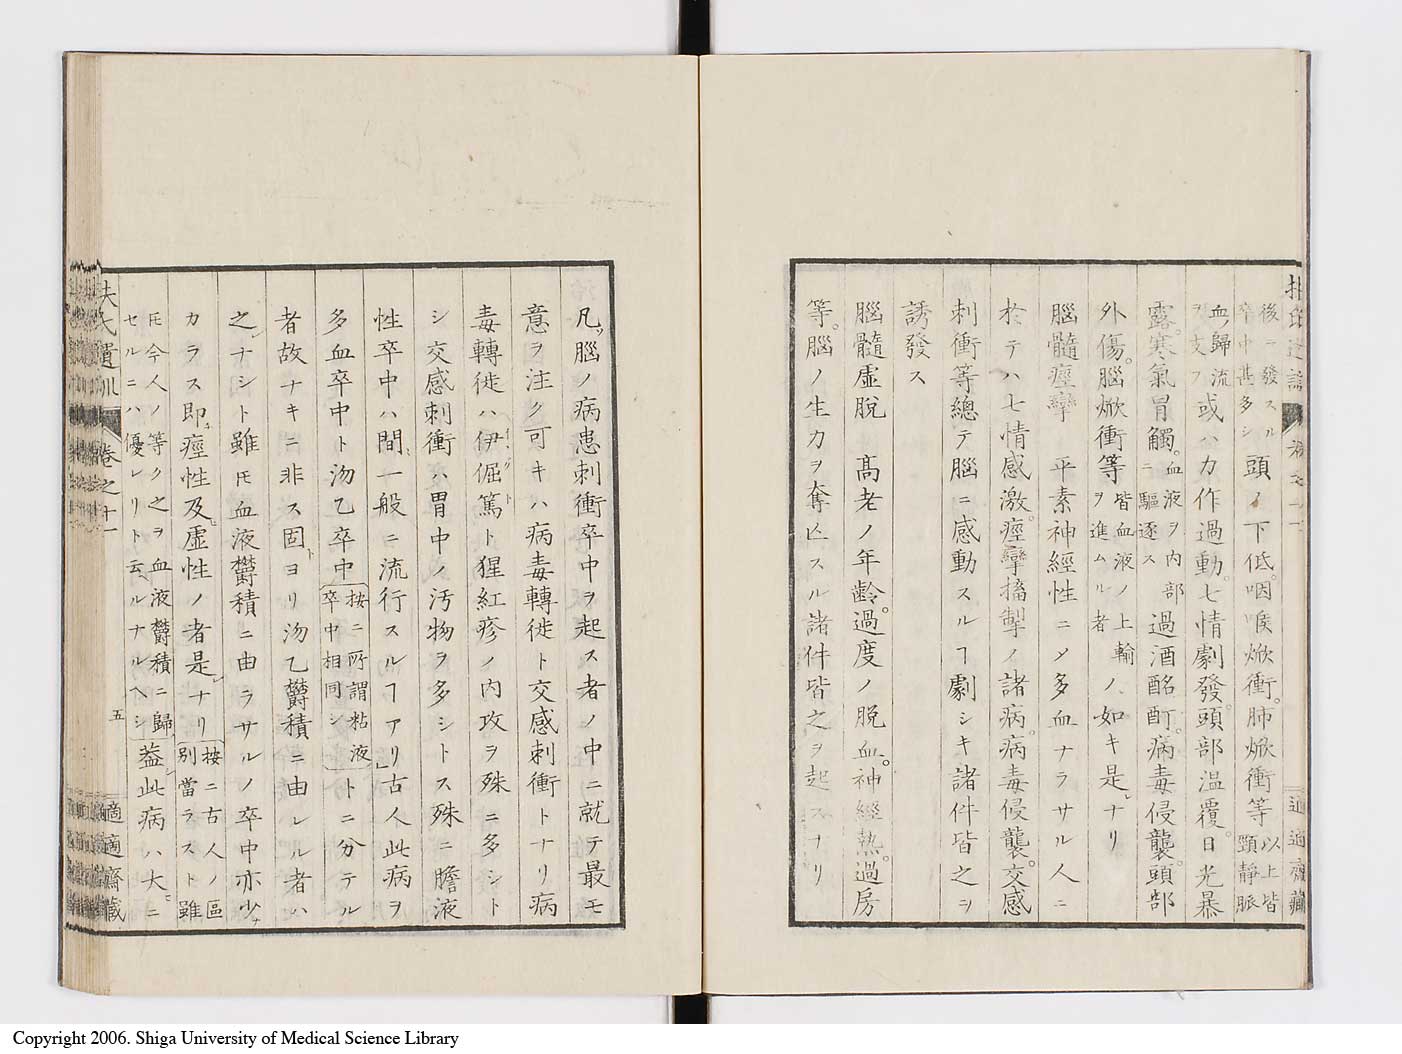 後ニ發スル
卒中甚多シ
頭ノ下低。咽喉焮衝。肺焮衝等
以上皆
頸靜脈
血歸流
ヲ支フ
或ハ力作過動。七情劇發。頭部温覆。日光暴
露。寒氣冒觸。
血液ヲ内部
ニ驅逐ス
過酒酩酊。病毒侵襲。頭部
外傷。腦焮衝等
皆血液ノ上輸
ヲ進ムル者
ノ如キ是ナリ
腦髓痙攣 平素神經性ニメ多血ナラサル人ニ
於テハ七情感激。痙攣搐掣ノ諸病。病毒侵襲。交感
刺衝等總テ腦ニ感動スルヿ劇シキ諸件皆之ヲ
誘發ス
腦髓虚脱 高老ノ年齡。過度ノ脱血。神經熱。過房
等。腦ノ生力ヲ奪亾スル諸件皆之ヲ起スナリ
凡ソ腦ノ病患刺衝卒中ヲ起ス者ノ中ニ就テ最モ
意ヲ注ク可キハ病毒轉徙ト交感刺衝トナリ病
毒轉徙ハ伊倔篤ト猩紅疹ノ内攻ヲ殊ニ多シト
シ交感刺衝ハ胃中ノ汚物ヲ多シトス殊ニ膽液
性卒中ハ間、一般ニ流行スルヿアリ古人此病ヲ
多血卒中ト沕乙卒中
按ニ所謂粘液
卒中相同シ
トニ分テル
者故ナキニ非ス固ヨリ沕乙欝積ニ由レル者ハ
之ナシト雖モ血液欝積ニ由ラサルノ卒中亦少
カラス即痙性及虚性ノ者是ナリ
按ニ古人ノ區
別當ラスト雖
モ今人ノ等ク之ヲ血液欝積ニ歸
セルニハ優レリト云ルナルヘシ
葢此病ハ大ニ
扶氏遺訓 卷之十一
五
適適齋藏
Copyright 2006. Shiga University of Medical Science Library